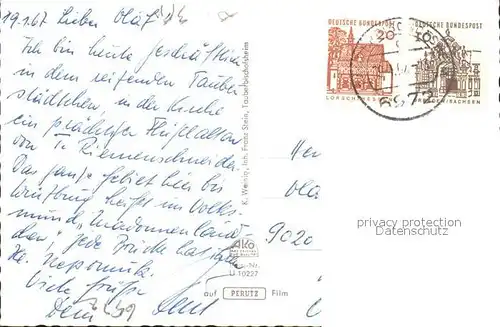 19.1.67 Lieber Olaf!
Ich bin heute geschäftlich
in dem reizenden Tauber
städtchen, in der Kirche
ein prächtiger Flügelaltar
von T. Riemenschneider.
Das ganze Gebiet hier bis
Würzburg heißt im Volks-
mund „Madonnenland-
chen", jede Brücke hat ihre
Hl. Nepomuk.
Viele Grüße
Dein
K. Weinig, Inh. Franz Stein, Tauberbischofsheim
AKO
U 10227
auf PERUTZ Film
DEUTSCHE BUNDESPOST
20
LORSCH/HESSEN
DEUTSCHE BUNDESPOST
SACHSEN
697
Her
Ola
9020
privacy protection
Datenschutz